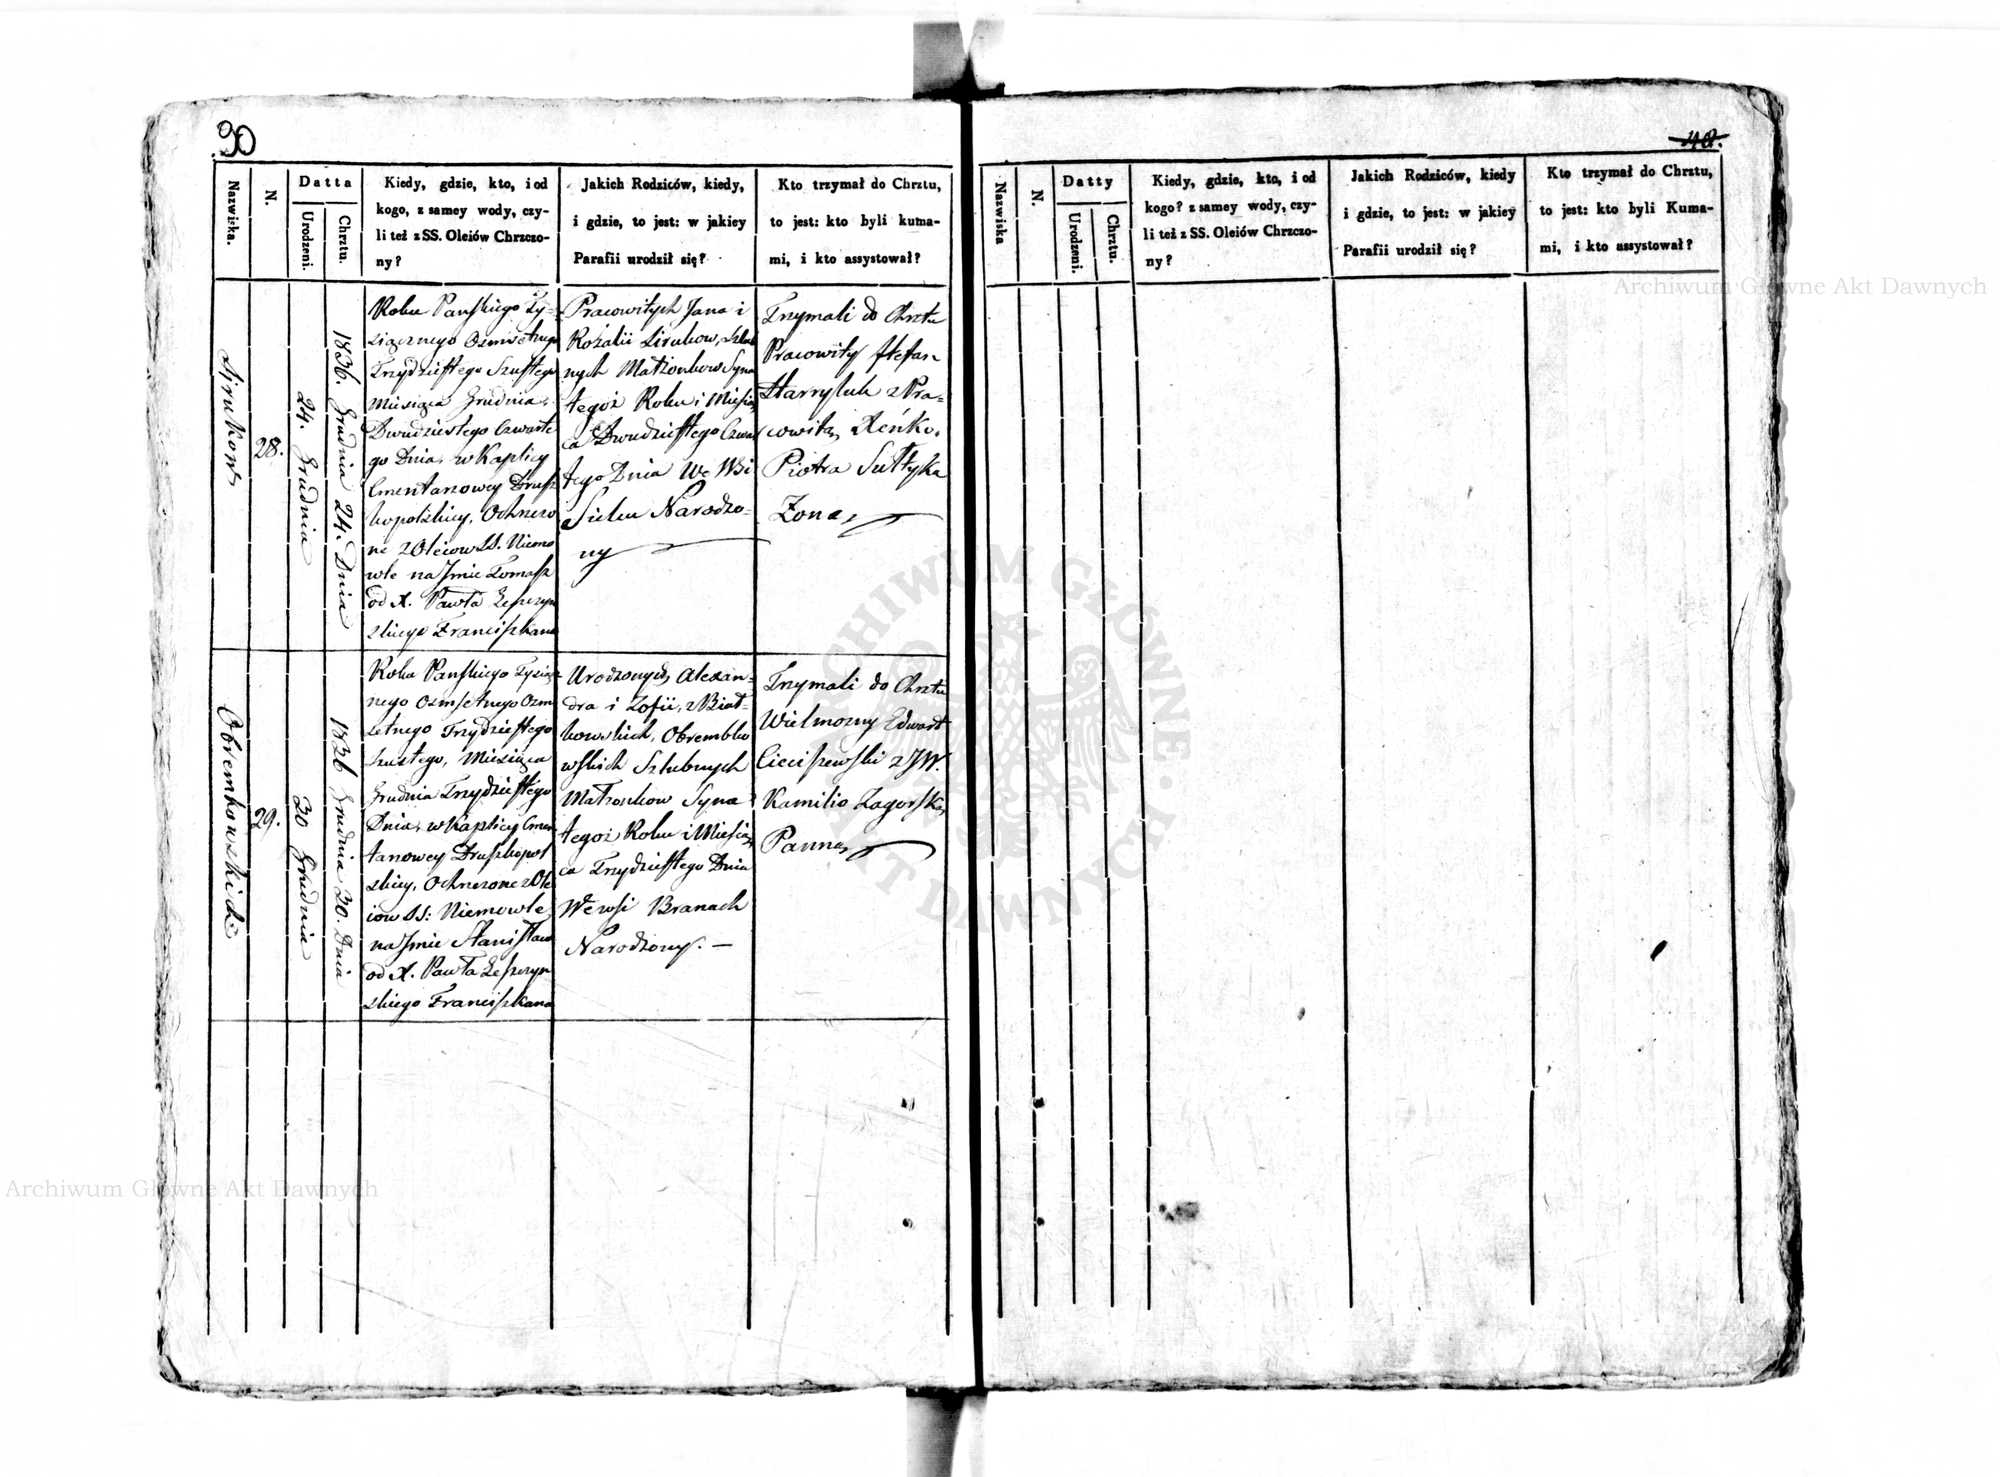 30
Nazwiska.
N.
Datta
Urodzeni.
Chrztu.
Kiedy, gdzie, kto, i od
kogo, z samey wody, czy-
li też z SS. Oleiów Chrzczo-
ny?
Jakich Rodziców, kiedy,
i gdzie, to jest: w jakiey
Parafii urodził się?
Kto trzymał do Chrztu,
to jest: kto byli kuma-
mi, i kto assystował?
28.
24. Grudnia
1836. Grudnia 24. Dnia
Roku Pańskiego Ty-
siącznego Ośmsetnego
Trzydziestego Szustego
Miesiąca Grudnia,
Dwudziestego Czwarte
go Dnia, w Kaplicy
Cmentarzowey Drusz
kopolskiey, Ochrzczo
ne z Oleiow SS. Niemo
wle na Jmie Tomasz
od X. Pawła
skiego Franciszkana
Pracowitych Jana i
Rożalii Sirukow, Szlub
nych Małżonkow Syna
tegoż Roku i Miesią
ca Dwudziestego Czwar
tego Dnia We Wsi
Sielcu Narodzo-
ny
Trzymali do Chrztu
Pracowity Stefan
z Pra-
cowitą
Piotra
Żoną
Obrembowskich
29.
30 Grudnia
1836 Grudnia 30. Dnia
Roku Pańskiego Tysiącz
nego Osmsetnego Osm
setnego Trzydziestego
Szustego, Miesiąca
Grudnia Trzydziestego
Dnia, w Kaplicy Cmen
tarzowey Druszkopol
skiey, Ochrzczone z Ole
iow SS: Niemowle
na Jmie Stanisław
od X. Pawła
skiego Franciszkana
Urodzonych Alexan-
dra i Zofii, z Biał-
kowskich, Obrembko
wskich Szlubnych
Małżonkow Syna
tegoż Roku i Miesią
ca Trzydziestego Dnia
We wsi Branach
Narodzony. —
Trzymali do Chrztu
Wielmożny Edward
Cieciszewski z JW.
Kamilio Zagorską
Panną
Nazwiska
N.
Datty
Urodzeni.
Chrztu.
Kiedy, gdzie, kto, i od
kogo? z samey wody, czy-
li też z SS. Oleiów Chrzczo-
ny?
Jakich Rodziców, kiedy
i gdzie, to jest: w jakiey
Parafii urodził się?
Kto trzymał do Chrztu,
to jest: kto byli Kuma-
mi, i kto assystował?
Archiwum Główne Akt Dawnych
ARCHIWUM GŁÓWNE · AKT DAWNYCH ·
Archiwum Główne Akt Dawnych